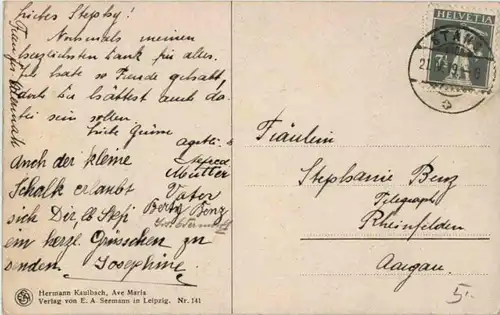 Liebes Stephy!
Nochmals meinen
herzlichsten Dank für alles.
Ich hatte so Freude gehabt,
hättest auch da-
bei sein sollen.
Grüsse
Auch der kleine
Schalk erlaubt
sich Dir lb Stefi
ein herzl. Grüsschen zu
senden. Josephine.
Alfred
Mutter
Vater
Berty Benz
HELVETIA
7½
STÄFA
Fräulein
Stephanie Benz
Telegraph
Rheinfelden
Aargau.
5.-
Hermann Kaulbach, Ave Maria
Verlag von E. A. Seemann in Leipzig. Nr. 141